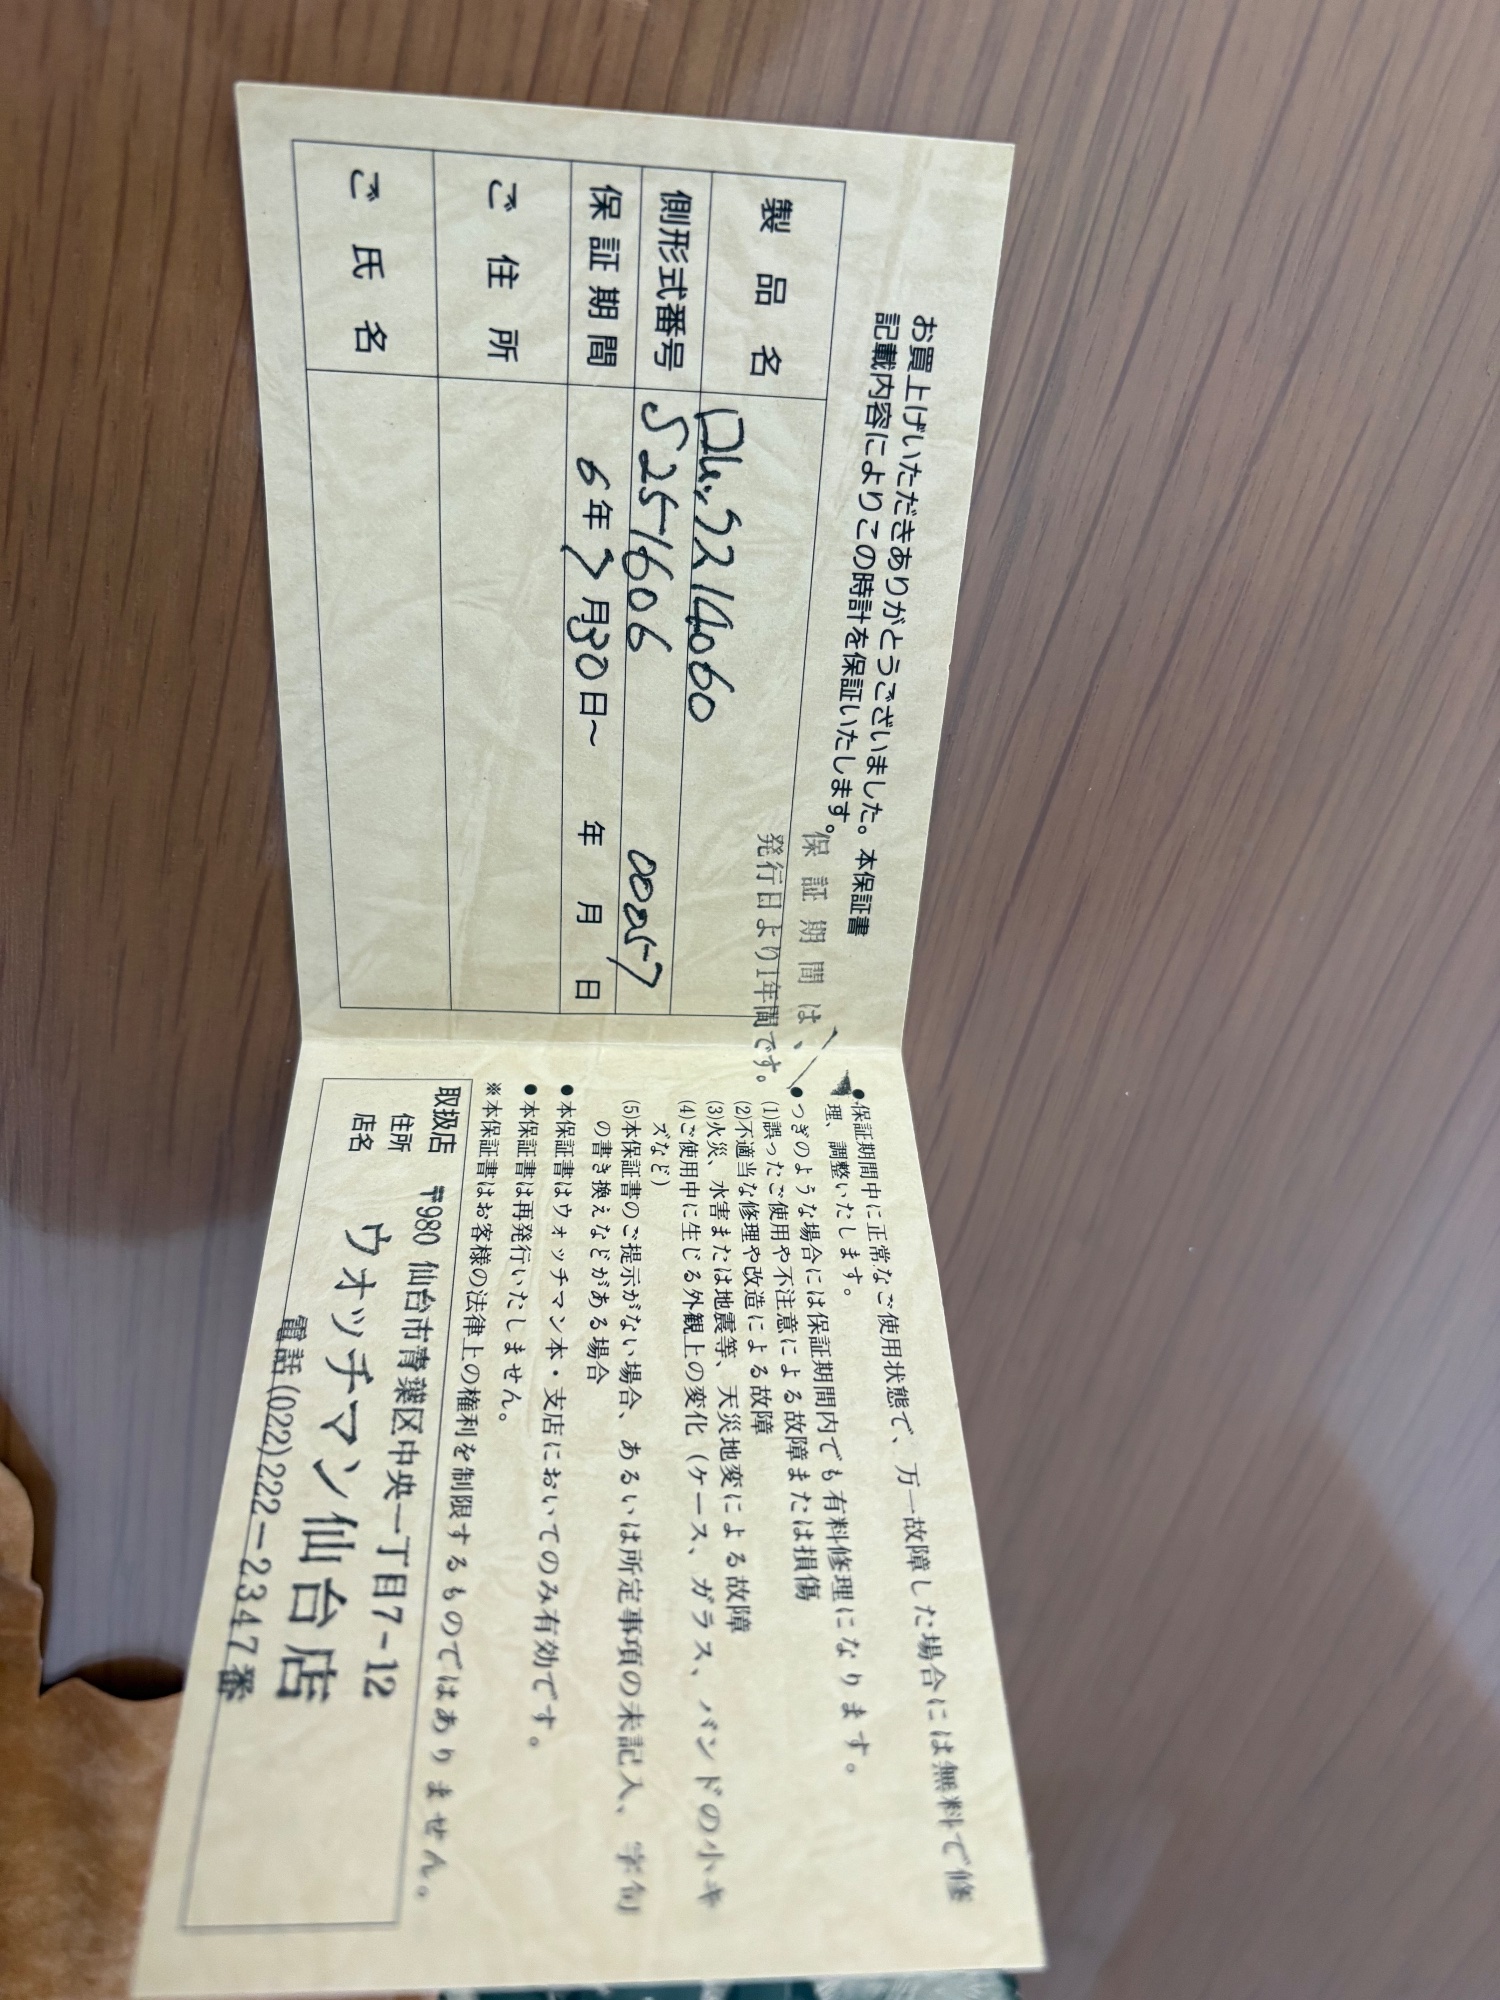 お買上げいただきありがとうございました。本保証書
記載内容によりこの時計を保証いたします。
保証期間は、
発行日より1年間です。
製品名 ロレックス 14060
側形式番号 S251606 00057
保証期間 6年7月30日～ 年 月 日
ご住所
ご氏名
●保証期間中に正常なご使用状態で、万一故障した場合には無料で修
理、調整いたします。
●つぎのような場合には保証期間内でも有料修理になります。
(1)誤ったご使用や不注意による故障または損傷
(2)不適当な修理や改造による故障
(3)火災、水害または地震等、天災地変による故障
(4)ご使用中に生じる外観上の変化（ケース、ガラス、バンドの小キ
ズなど）
(5)本保証書のご提示がない場合、あるいは所定事項の未記入、字句
の書き換えなどがある場合
●本保証書はウォッチマン本・支店においてのみ有効です。
●本保証書は再発行いたしません。
※本保証書はお客様の法律上の権利を制限するものではありません。
取扱店
住所 〒980 仙台市青葉区中央一丁目7-12
店名 ウオッチマン仙台店
電話(022)222-2347番